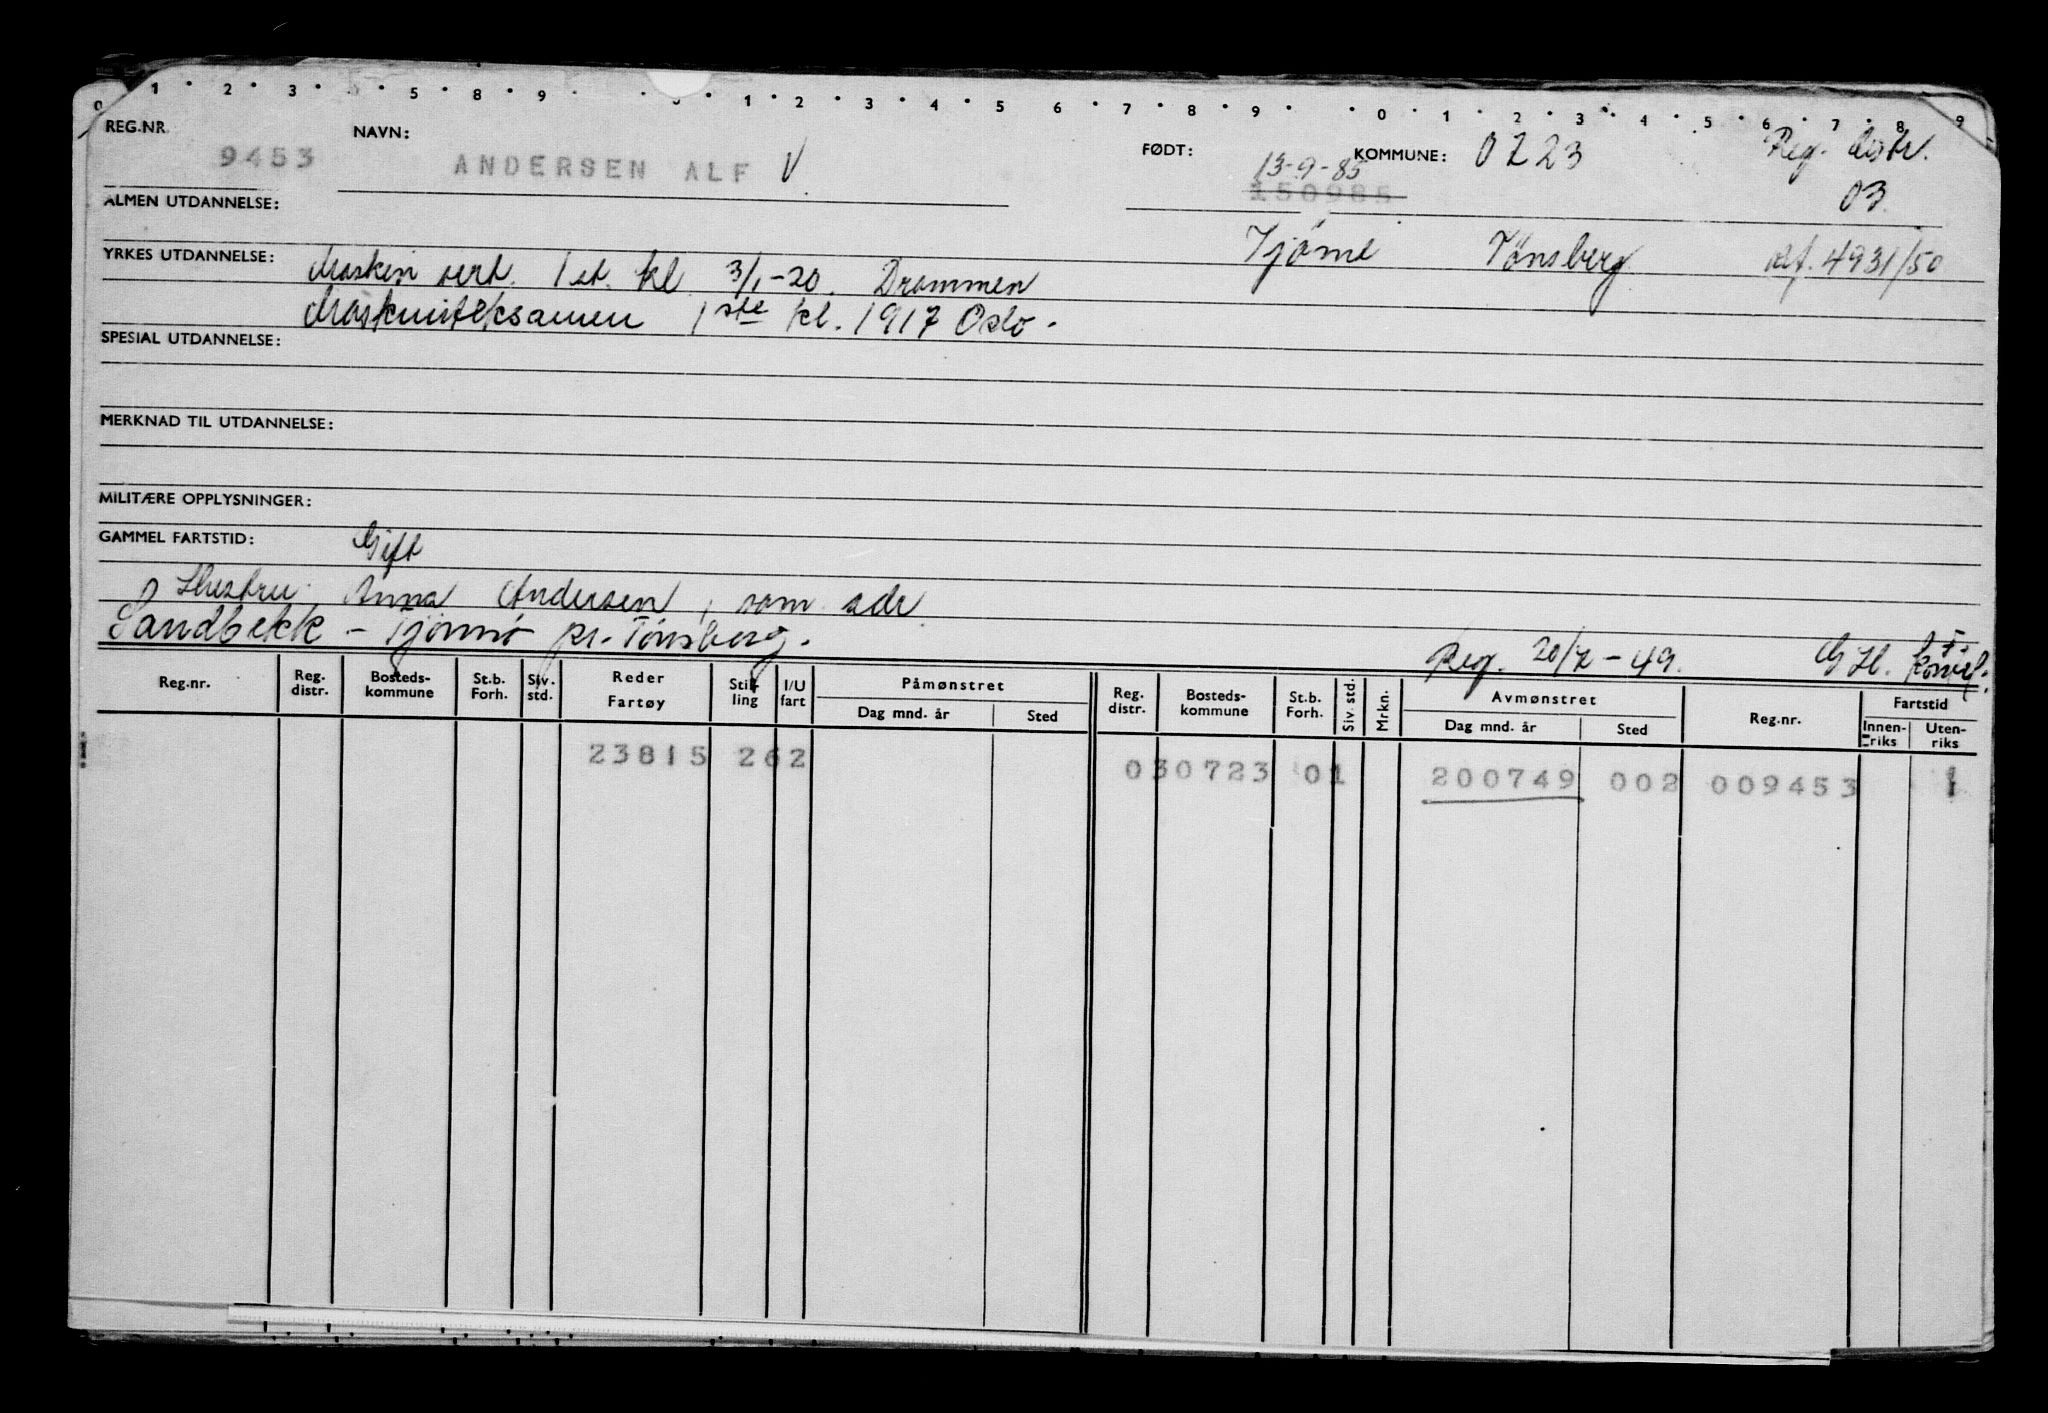 0 1 2 3 5 8 9 1 2 3 4 5 6 7 8 9 0 1 2 3 4 5 6 7 8 9
REG.NR. 9453 NAVN: ANDERSEN ALF V. FØDT: 13-9-85 KOMMUNE: 0723 Reg. distr.
150985 03.
ALMEN UTDANNELSE:
Tjöme Tønsberg ref. 4931/50
YRKES UTDANNELSE: Maskin sert. 1 st. kl. 3/1-20. Drammen
Maskinisteksamen 1ste kl. 1917 Oslo.
SPESIAL UTDANNELSE:
MERKNAD TIL UTDANNELSE:
MILITÆRE OPPLYSNINGER:
GAMMEL FARTSTID: Gift
Hustru: Anna Andersen, sam. adr.
Sandbekk - Tjømø pr. Tønsberg.
Reg. 20/7-49. G H.
Reg.nr. Reg. distr. Bosteds- kommune St.b. Forh. Siv. std. Reder Fartøy Stil- ling I/U fart Påmønstret Dag mnd. år Sted Reg. distr. Bosteds- kommune St.b. Forh. Siv. std. Mrkn. Avmønstret Dag mnd. år Sted Reg.nr. Fartstid Innen- riks Uten- riks
23815 262 030723 01 200749 002 009453 1